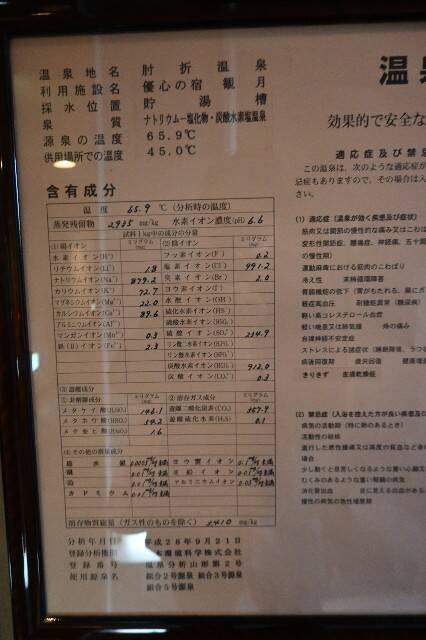 温泉地名 肘折温泉
利用施設名 優心の宿 観月
採水位置 貯湯槽
泉質 ナトリウム－塩化物・炭酸水素塩温泉
源泉の温度 65.9℃
供用場所での温度 45.0℃
含有成分
温度 65.9 ℃（分析時の温度）
蒸発残留物 2935 mg/kg 水素イオン濃度(pH) 6.6
試料1kg中の成分の分量
(1) 陽イオン ミリグラム(mg) (2) 陰イオン ミリグラム(mg)
水素イオン(H⁺) フッ素イオン(F⁻) 0.2
リチウムイオン(Li⁺) 1.8 塩素イオン(Cl⁻) 991.2
ナトリウムイオン(Na⁺) 臭素イオン(Br⁻) 2.0
カリウムイオン(K⁺) 72.7 ヨウ素イオン(I⁻)
マグネシウムイオン(Mg⁺⁺) 22.0 水酸イオン(OH⁻)
カルシウムイオン(Ca⁺⁺) 89.6 硫化水素イオン(HS⁻)
アルミニウムイオン(Al⁺⁺⁺)
マンガンイオン(Mn⁺⁺) 0.8 硫酸イオン(SO₄⁻⁻)
鉄(Ⅱ)イオン(Fe⁺⁺) 2.8
炭酸水素イオン(HCO₃⁻) 912.0
炭酸イオン(CO₃⁻⁻) 0.3
(3) 遊離成分
① 非解離成分 ミリグラム(mg) ② 溶存ガス成分 ミリグラム(mg)
メタケイ酸(H₂SiO₃) 146.1 遊離二酸化炭素(CO₂)
メタホウ酸(HBO₂) 遊離硫化水素(H₂S) 0.1
メタ亜ヒ酸(HAsO₂) 1.6
(4) その他の微量成分
総水銀 0.0005mg/kg未満 ヨウ素イオン 0.1mg/kg未満
銅 亜鉛イオン
鉛 アルミニウムイオン
カドミウム
溶存物質総量（ガス性のものを除く） 3410 mg/kg
分析年月日 平成28年9月21日
登録分析機関 環境科学株式会社
登録番号 温泉分析山形第2号
使用源泉名 組合2号源泉 組合3号源泉
組合5号源泉
温泉
効果的で安全な
適応症及び禁忌
この温泉は、次のような適応症が
忌症もありますので、その場合は入
(1) 適応症（温泉が効く疾患及び症状）
筋肉又は関節の慢性的な痛み又はこわば
変形性関節症、腰痛症、神経痛、五十肩
の慢性期）
運動麻痺における筋肉のこわばり
冷え性 末梢循環障害
胃腸機能の低下（胃がもたれる、腸にガ
軽症高血圧 耐糖能異常（糖尿病）
軽い高コレステロール血症
軽い喘息又は肺気腫 痔の痛み
自律神経不安定症
ストレスによる諸症状（睡眠障害、うつ
病後回復期 疲労回復 健康増
きりきず 皮膚乾燥症
(2) 禁忌症（入浴を控えた方が良い疾患及び
病気の活動期（特に熱のあるとき）
活動性の結核
進行した悪性腫瘍又は高度の貧血など身
場合
少し動くと息苦しくなるような重い心臓又
むくみのあるような重い腎臓の病気
消化管出血 目に見える出血がある
慢性の病気の急性増悪期